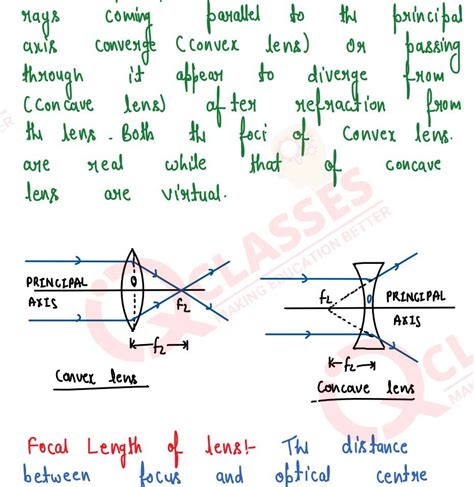 rays coming parallel to the principal
axis converge (convex lens) or passing
through it appear to diverge from
(concave lens) after refraction from
the lens. Both the foci of convex lens.
are real while that of concave
lens are virtual.
CLASSES
MAKING EDUCATION BETTER
PRINCIPAL
AXIS
O
f2
f2
Convex lens
f2
O
PRINCIPAL
AXIS
f2
Concave lens
CL
Focal Length of lens!- The distance
between focus and optical centre